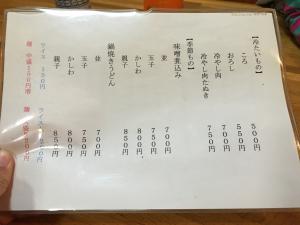 【冷たいもの】
ころ 500円
おろし 550円
冷やし肉 700円
冷やし肉たぬき 750円
【季節もの】
味噌煮込み
並 700円
玉子 750円
かしわ 800円
親子 850円
鍋焼きうどん
並 700円
玉子 750円
かしわ 800円
親子 850円
ライス 150円 ライス
麺 中盛150円増 麺